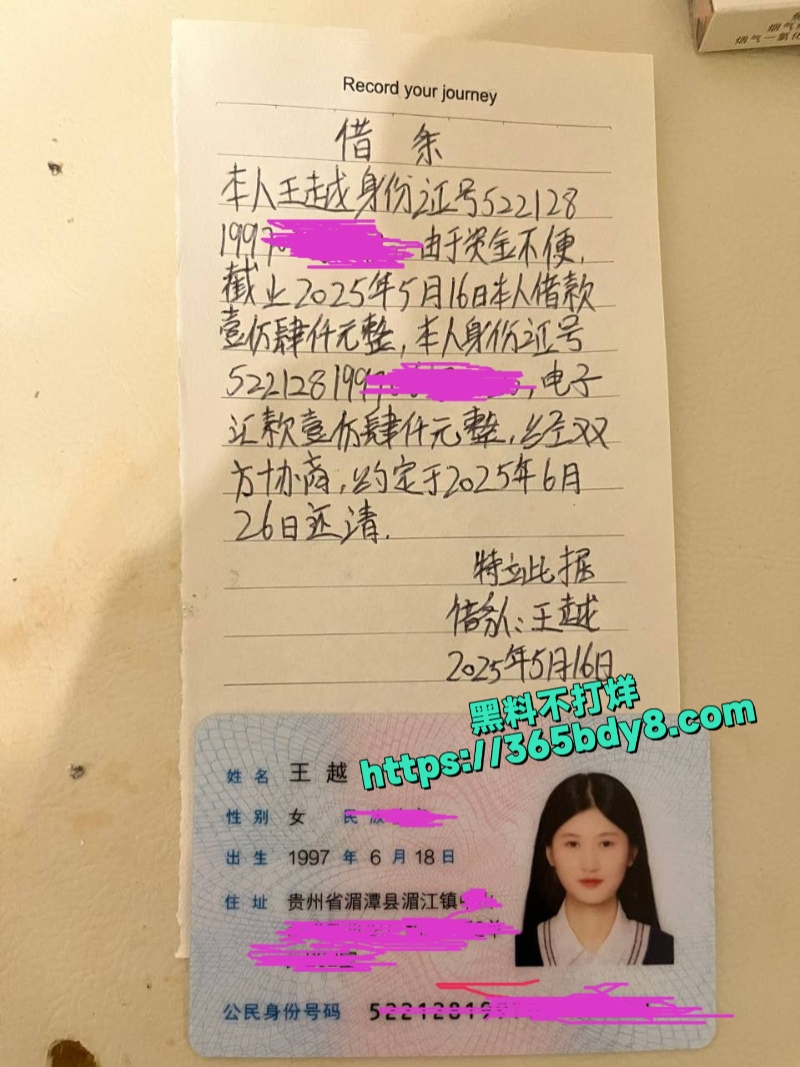 烟气
烟气一氧化
Record your journey
借 条
本人王越身份证号522128
1997 由于资金不便,
截止2025年5月16日本人借款
壹仿肆仟元整,本人身份证号
522128199 ,电子
汇款壹仿肆仟元整,经双
方协商,约定于2025年6月
26日还清.
特立此据
借条人:王越
2025年5月16日
黑料不打烊
https://365bdy8.com
姓名 王越
性别 女 民族
出生 1997 年 6 月 18 日
住址 贵州省湄潭县湄江镇
公民身份号码 522128199